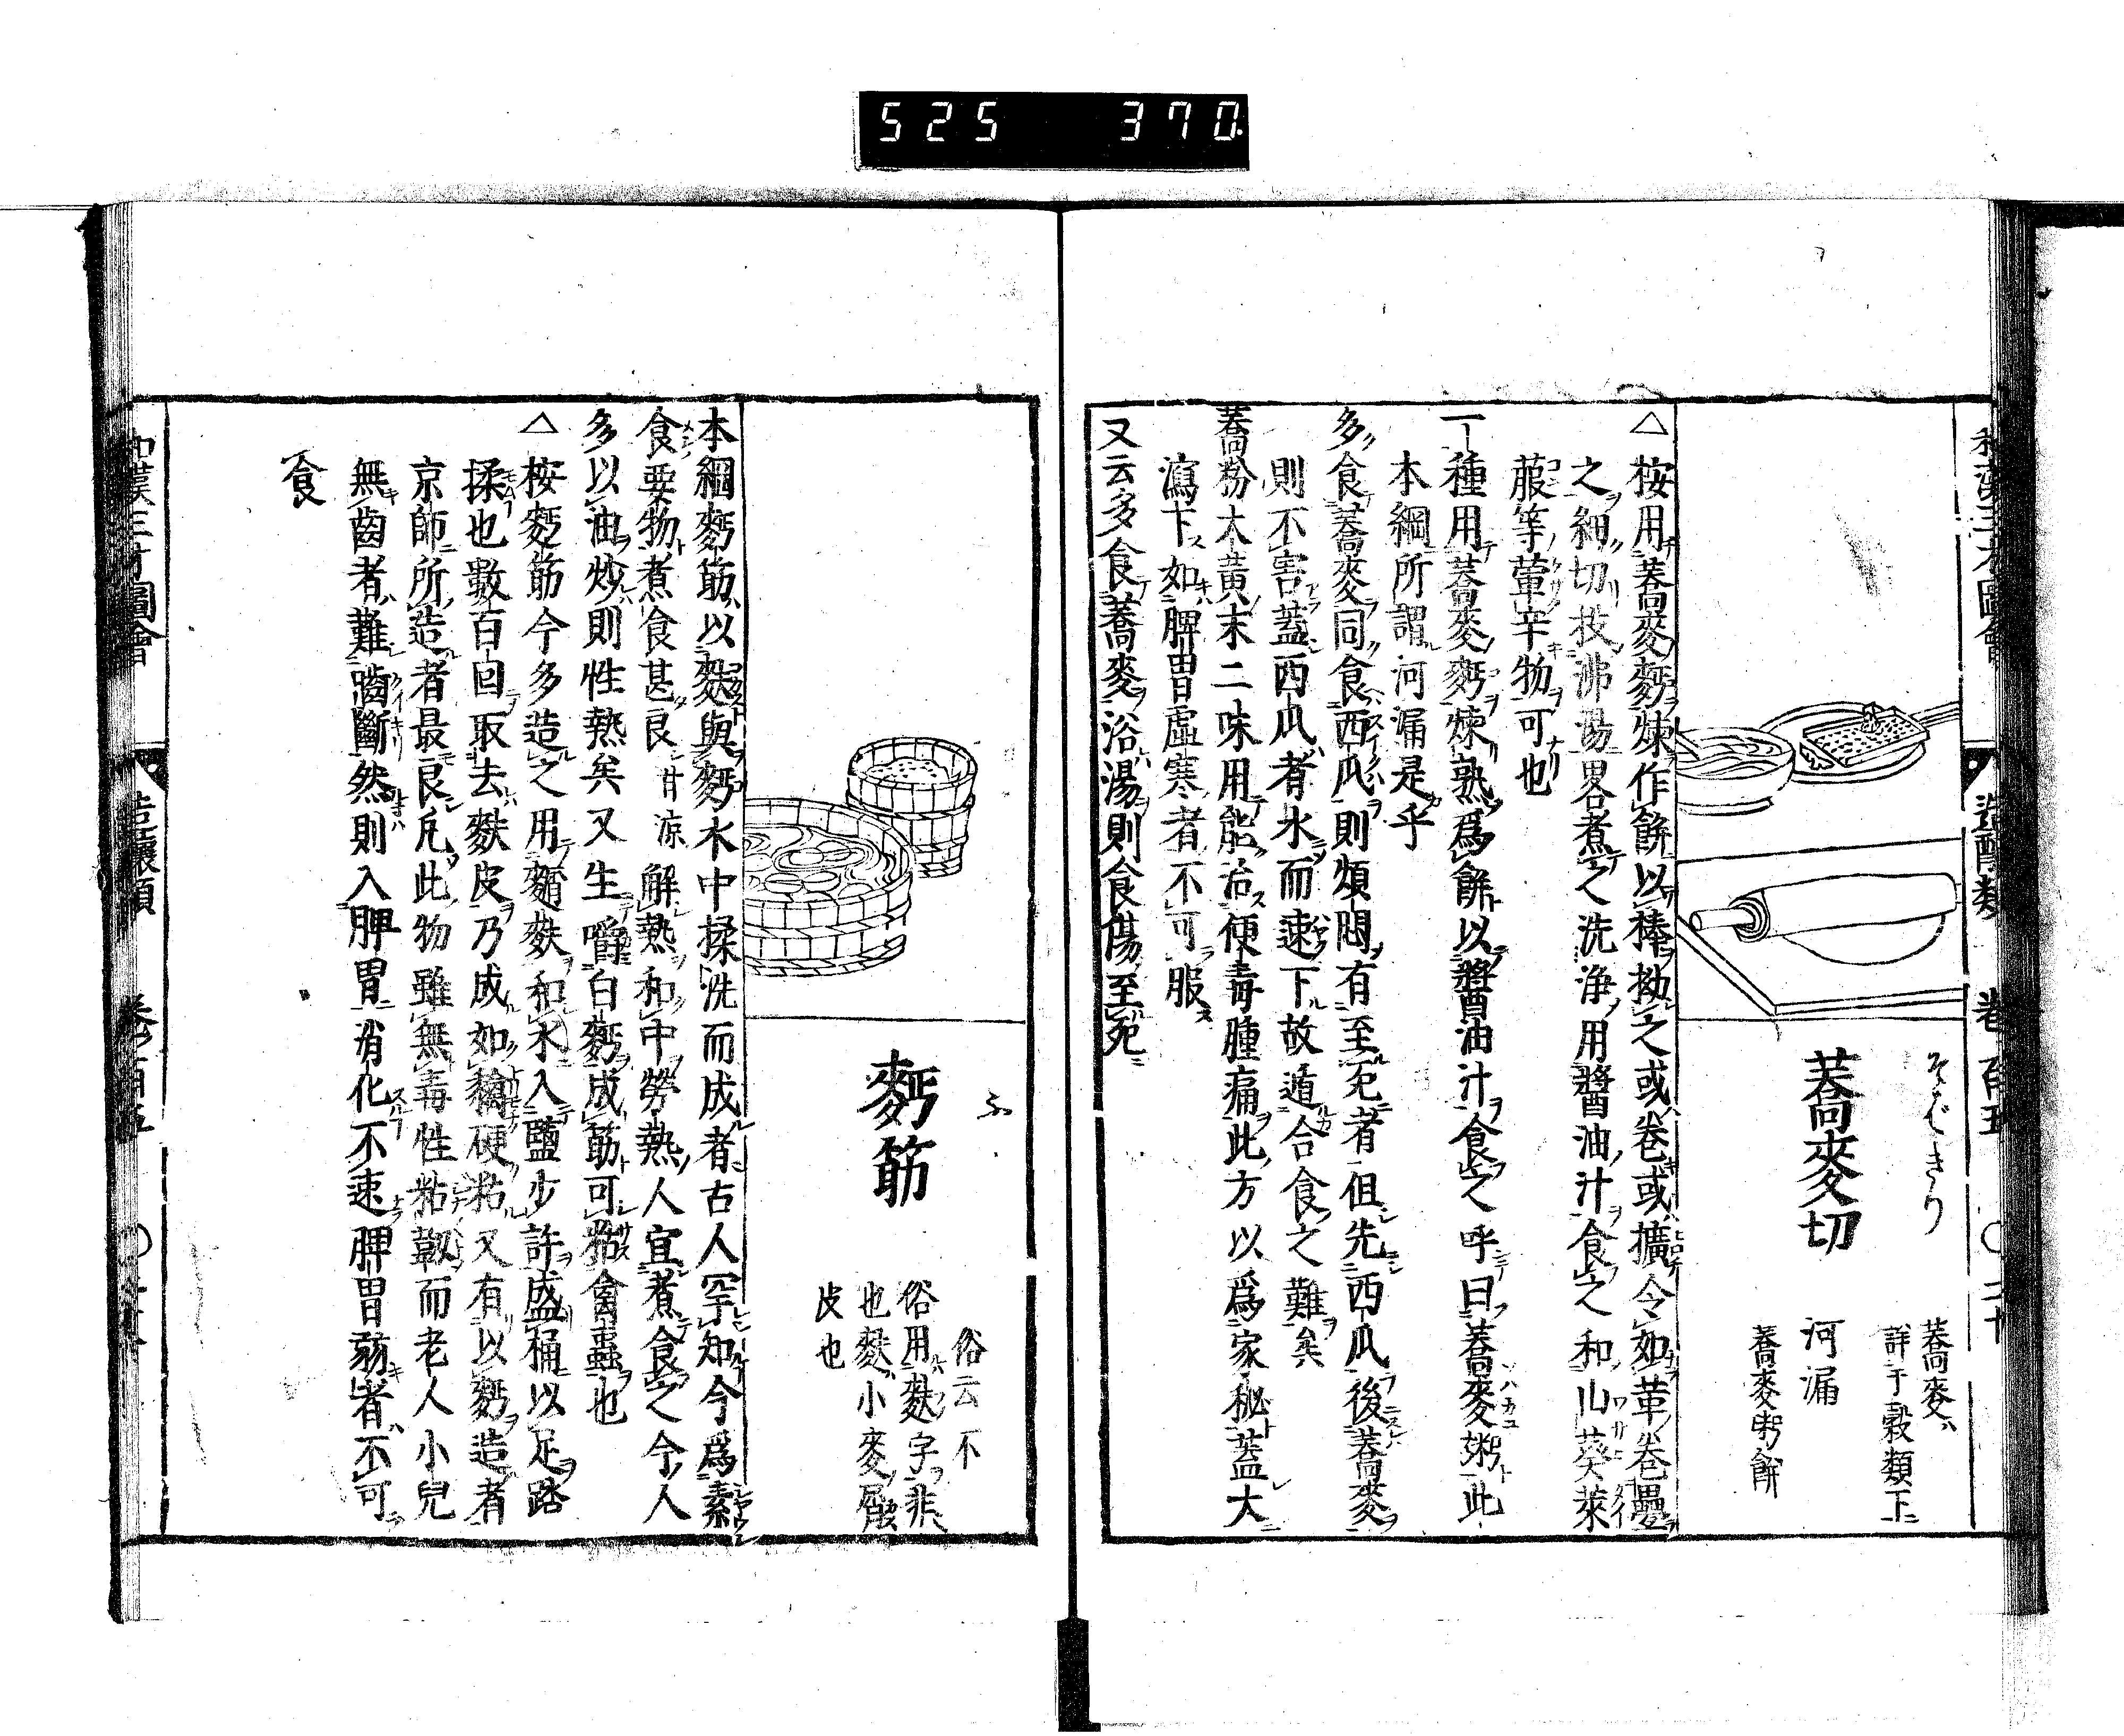 525 370
和漢三才圖會 造釀類 卷百五 〇二十
そばきり
蕎麥切
蕎麥ハ
詳于穀類下
河漏
蕎麥粥餅
△按用蕎麥麪煉作餅以棒拗之或卷或擴令如革卷疊
之細切投沸湯畧煮之洗淨用醬油汁食之和山葵萊
菔等葷辛物可也
一種用蕎麥麪煉熟爲餅以醬油汁食之呼曰蕎麥粥此
本綱所謂河漏是乎
多食蕎麥同食西瓜則煩悶有至死者但先西瓜後蕎麥
則不害蓋西瓜者水而速下故遁合食之難矣
蕎粉大黃末二味用能治便毒腫痛此方以爲家秘蓋大
瀉下如脾胃虛寒者不可服
又云多食蕎麥浴湯則食傷至死
ふ
麪筋
俗云不
俗用麩字非
也麩小麥屑
皮也
本綱麪筋以麩與麪水中揉洗而成者古人罕知今爲素
食要物煮食甚良甘凉解熱和中勞熱人宜煮食之今人
多以油炒則性熱矣又生嚼白麪成筋可粘禽蟲也
△按麪筋今多造之用麤麩和水入鹽少許盛桶以足踏
揉也數百回取去麩皮乃成如黐硬粘又有以麪造者
京師所造者最良凡此物雖無毒性粘韌而老人小兒
無齒者難嚙斷然則入脾胃消化不速脾胃弱者不可
食
和漢三才圖會 造釀類 卷百五